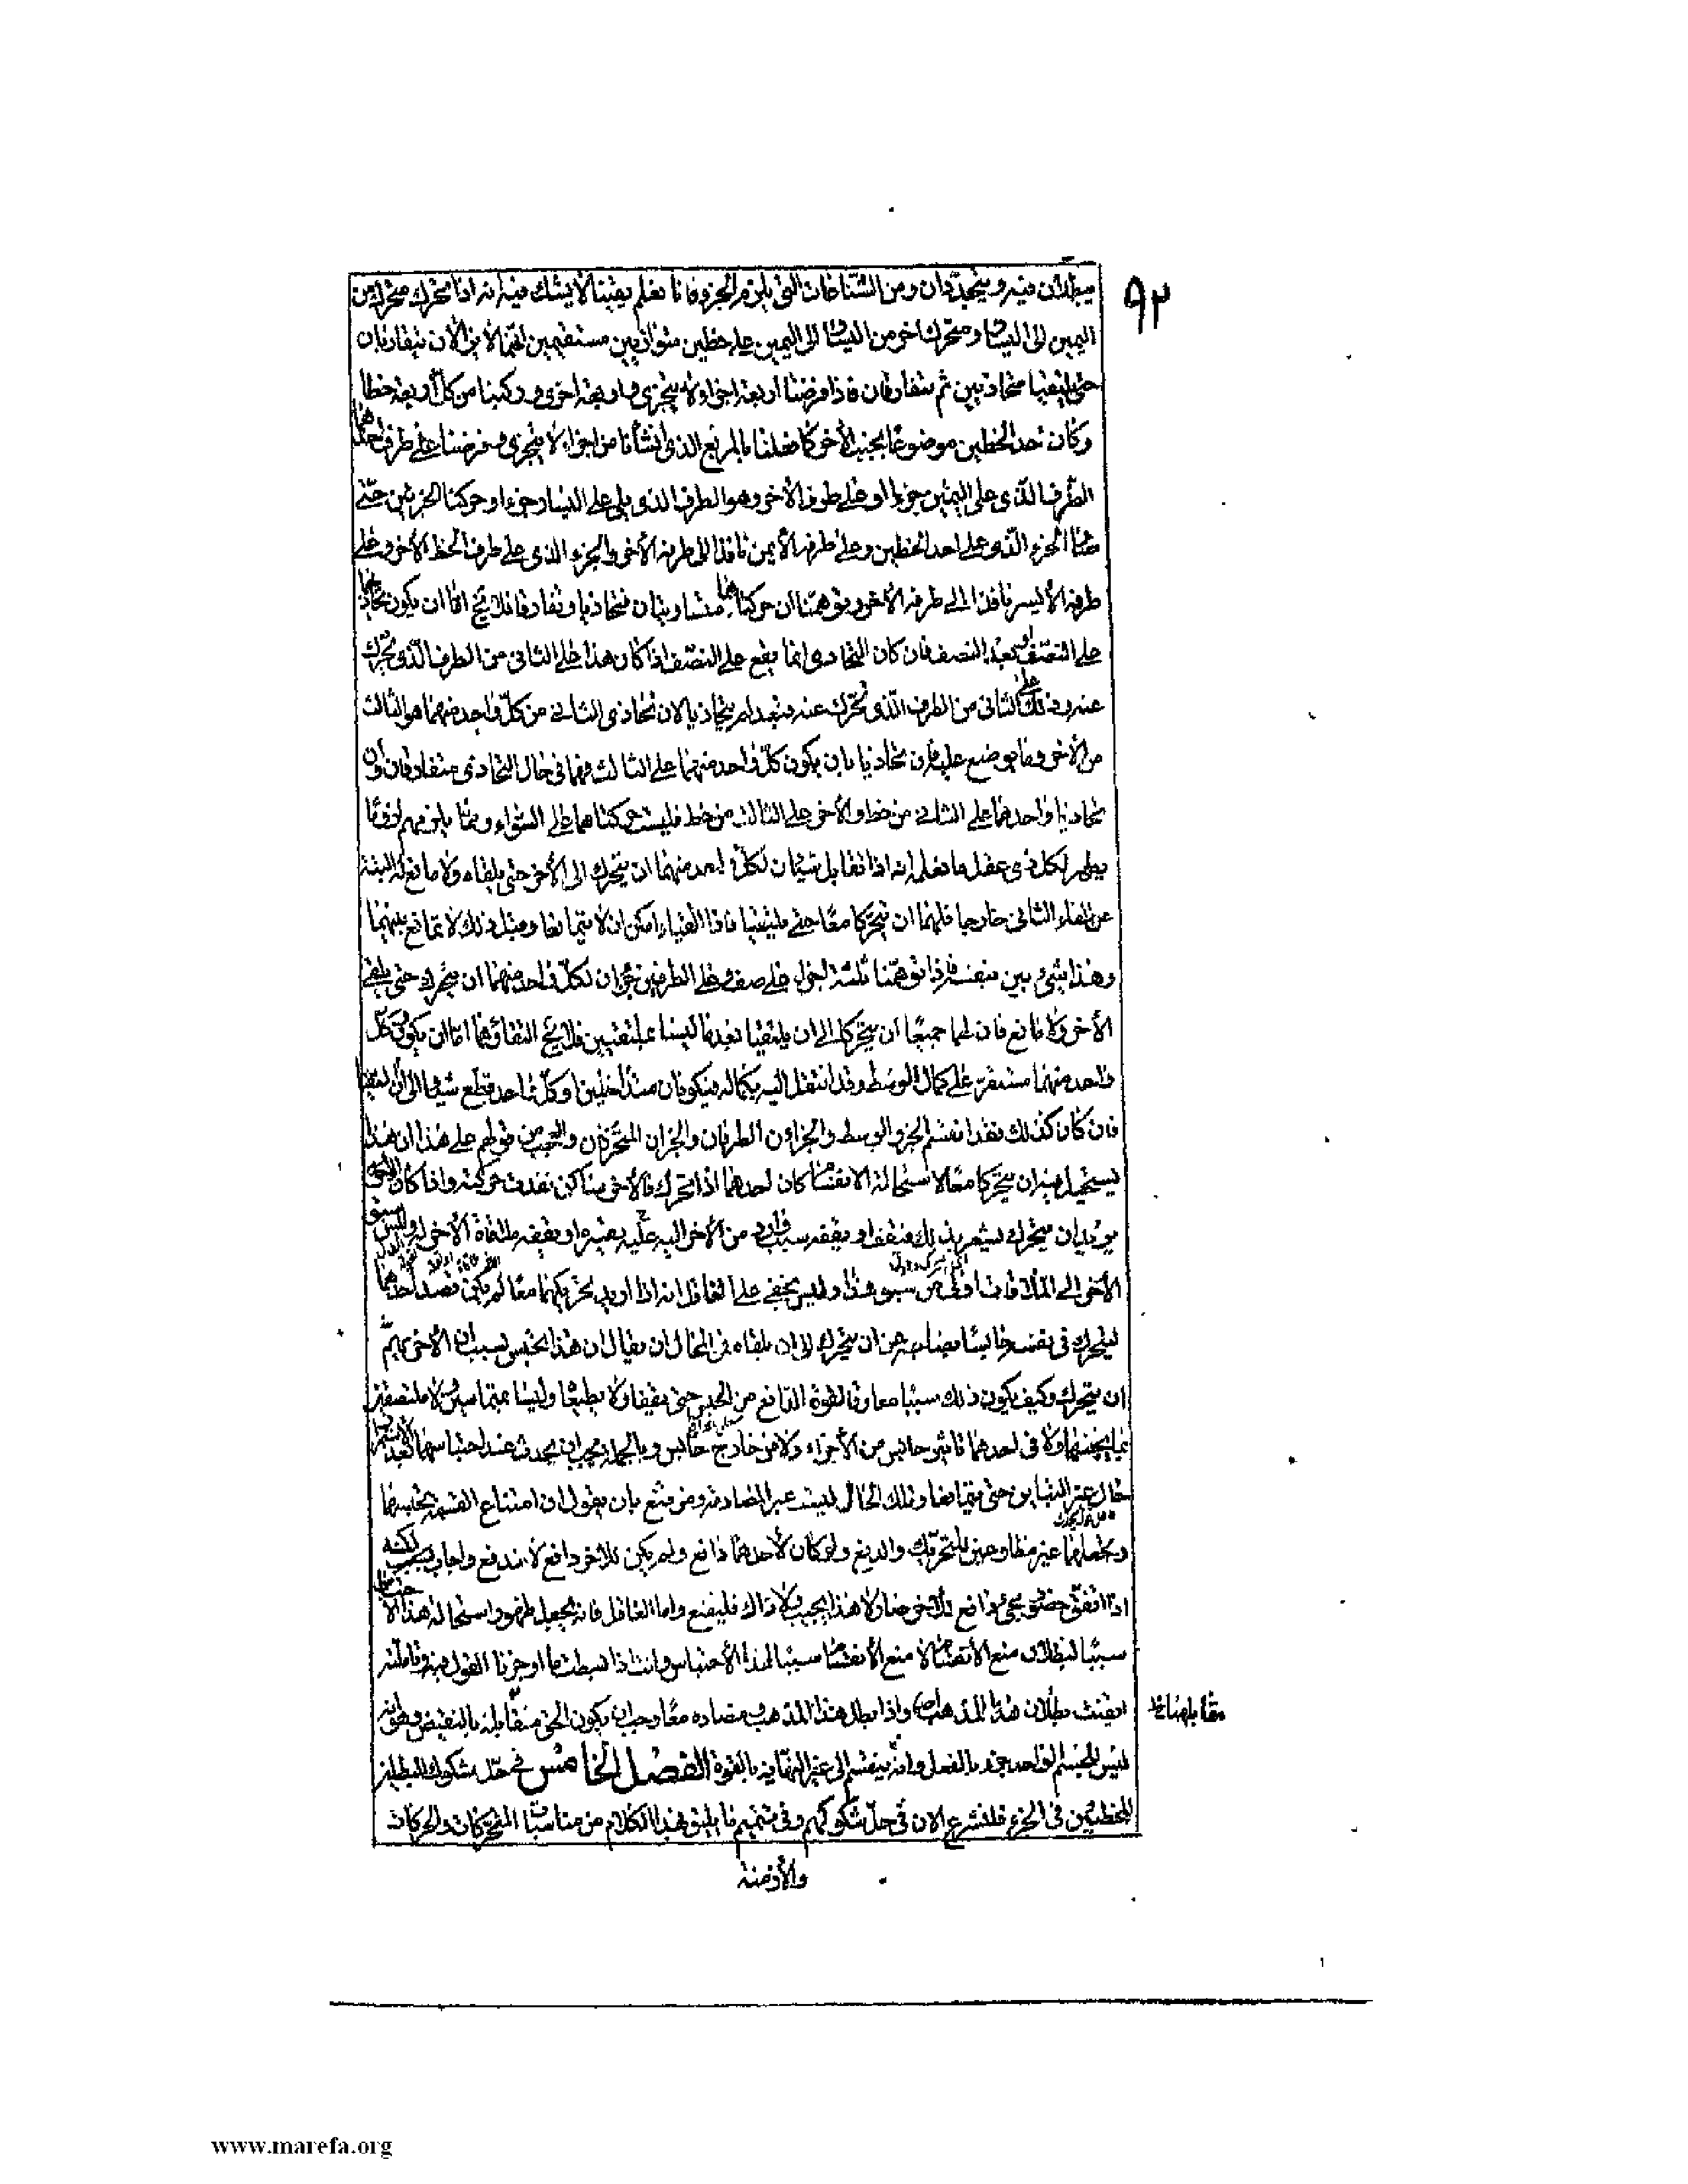 ٩٢
يبطلان فيه ويتجددان ومن الشناعات التي يلزم الجزء فانا نعلم يقينا لا يشك فيه انه اذا تحرك متحرك من
اليمين الى اليسار ومتحرك اخر من اليسار الى اليمين على خطين متوازيين مستقيمين انهما لا يزالان يتقاربان
حتى يلتقيا متحاذيين ثم يتفارقان فاذا فرضنا اربعة اجزاء لا يتجزى واربعة اخرى وركبنا من كل اربعة خطا
وكان احد الخطين موضوعا بجنب الأخر كما فعلنا بالمربع الذي انشأنا من اجزاء لا يتجزى وفرضنا على طرف احدهما
الطرف الذي على اليمين جزءا وعلى طرف الأخر وهو الطرف الذي يلي على اليسار جزءا وحركنا الجزئين حتى
الجزء الذي على احد الخطين وعلى طرفه الأيمن نافذا الى طرفه الأخر والجزء الذي على طرف الخط الأخر وعلى
طرفه الأيسر نافذا الى طرفه الأخر وتوهمنا ان حركتاهما متساويتان فتحاذيا وتفارقا فلا يخ اما ان يكون تحاذيهما
على النصف او بعد النصف فان كان التحاذي انما يقع على النصف اذا كان هذا على الثاني من الطرف الذي تحرك
عنه وذلك على الثاني من الطرف الذي تحرك عنه فبعد لم يتحاذيا لان تحاذي الثاني من كل واحد منهما هو الثالث
من الأخر وما يوضع عليه فان تحاذيا بان يكون كل واحد منهما على الثالث فهما في حال التحاذي متفارقان وان
تحاذيا واحدهما على الثاني من خط والأخر على الثالث من خط فليست حركتاهما على السواء ومما يلزمهم لزوما
يظهر لكل ذي عقل ما نعلم انه اذا تقابل شيئان لكل واحد منهما ان يتحرك الى الأخر حتى يلقاه ولا مانع له البتة
عن لقاء الثاني خارجا فلهما ان يتحركا معا حتى يلتقيا فاذا التقيا امكن ان لا يتمانعا وقبل ذلك لا تمانع بينهما
وهذا شيء بين بنفسه فاذا توهمنا ثلثة اجزاء على صف وعلى الطرفين جزءان لكل واحد منهما ان يتحرك حتى يلقى
الأخر ولا مانع فان لهما جميعا ان يتحركا الى ان يلتقيا بعدما ليسا بملتقيين فلا يخ التقاؤهما اما ان يكون كل
واحد منهما مستقر على كمال الوسط وقد انتقل اليه بكماله فيكونان متداخلين او كل واحد قطع شيئا الى ان التقيا
فان كان كذلك فقد انقسم الجزء الوسط والجزءان الطرفان والجزءان المتحركان والعجب من قولهم على هذا ان هذا
يستحيل فيه ان يتحركا معا لاستحالة الانقسام كان احدهما اذا تحرك فالأخر ساكن نفدت حركته واذا كان الشيء
يريد ان يتحرك يشعر بذلك فيقف او يقفه سبب وارد من الأخر اليه عليه بغتة او يقفه ملاقاة الأخر له وليس سبق
الأخر الى الملاقات اولى من سبق هذا وليس يخفى على العاقل انه اذا اريد تحريكهما معا لم يكن قصد احدهما
ليتحرك في نفسه حابسا صاحبه عن ان يتحرك الى ان يلقاه فمن المحال ان يقال ان هذا يحتبس بسبب ان الأخر يهم
ان يتحرك وكيف يكون ذلك سببا معاوقا لقوة الدافع من الجنس حتى يقفا ولا يطيعا وليسا بمتماسين ولا ملتصقين
بما يجنبهما ولا في احدهما تأثير حابس من الأجزاء ولا من خارج حابس وبالجملة يجب ان يحدث عند احتباسهما بعد الاستمرار
حال عن التباين حتى يتمانعا وتلك الحال ليست غير المصادمة ومن يقنع بان يقول ان امتناع القسمة يحبسهما
ويجعلهما غير مطاوعين للتحريك والدفع ولو كان لأحدهما دافع ولم يكن للاخر دافع لاندفع واجاب لكنه
اذا اتفق حضور مجيء دافع للاخر صار لا هذا يجيب ولا ذاك فليقنع واما العاقل فانه يجعل ظهور استحالة هذا الاحتباس
سببا لبطلان منع الأنقسام لا منع الأنقسام سببا لهذا الأحتباس وانت اذا بسطت ما اوجزنا القول فيه وتأملته
ايقنت بطلان هذا المذهب واذا بطل هذا المذهب ومضاده معا وجب ان يكون الحق في مقابلته بالنقيض وهو انه
ليس للجسم الواحد جزء بالفعل وانه ينقسم الى غير النهاية بالقوة الفصل الخامس في حل شكوك المبطلين
المخطئين في الجزء فلنشرع الان في حل شكوكهم وفي تتميم ما يليق بهذا الكلام من مناسبات المتحركات والحركات
والأزمنة
www.marefa.org